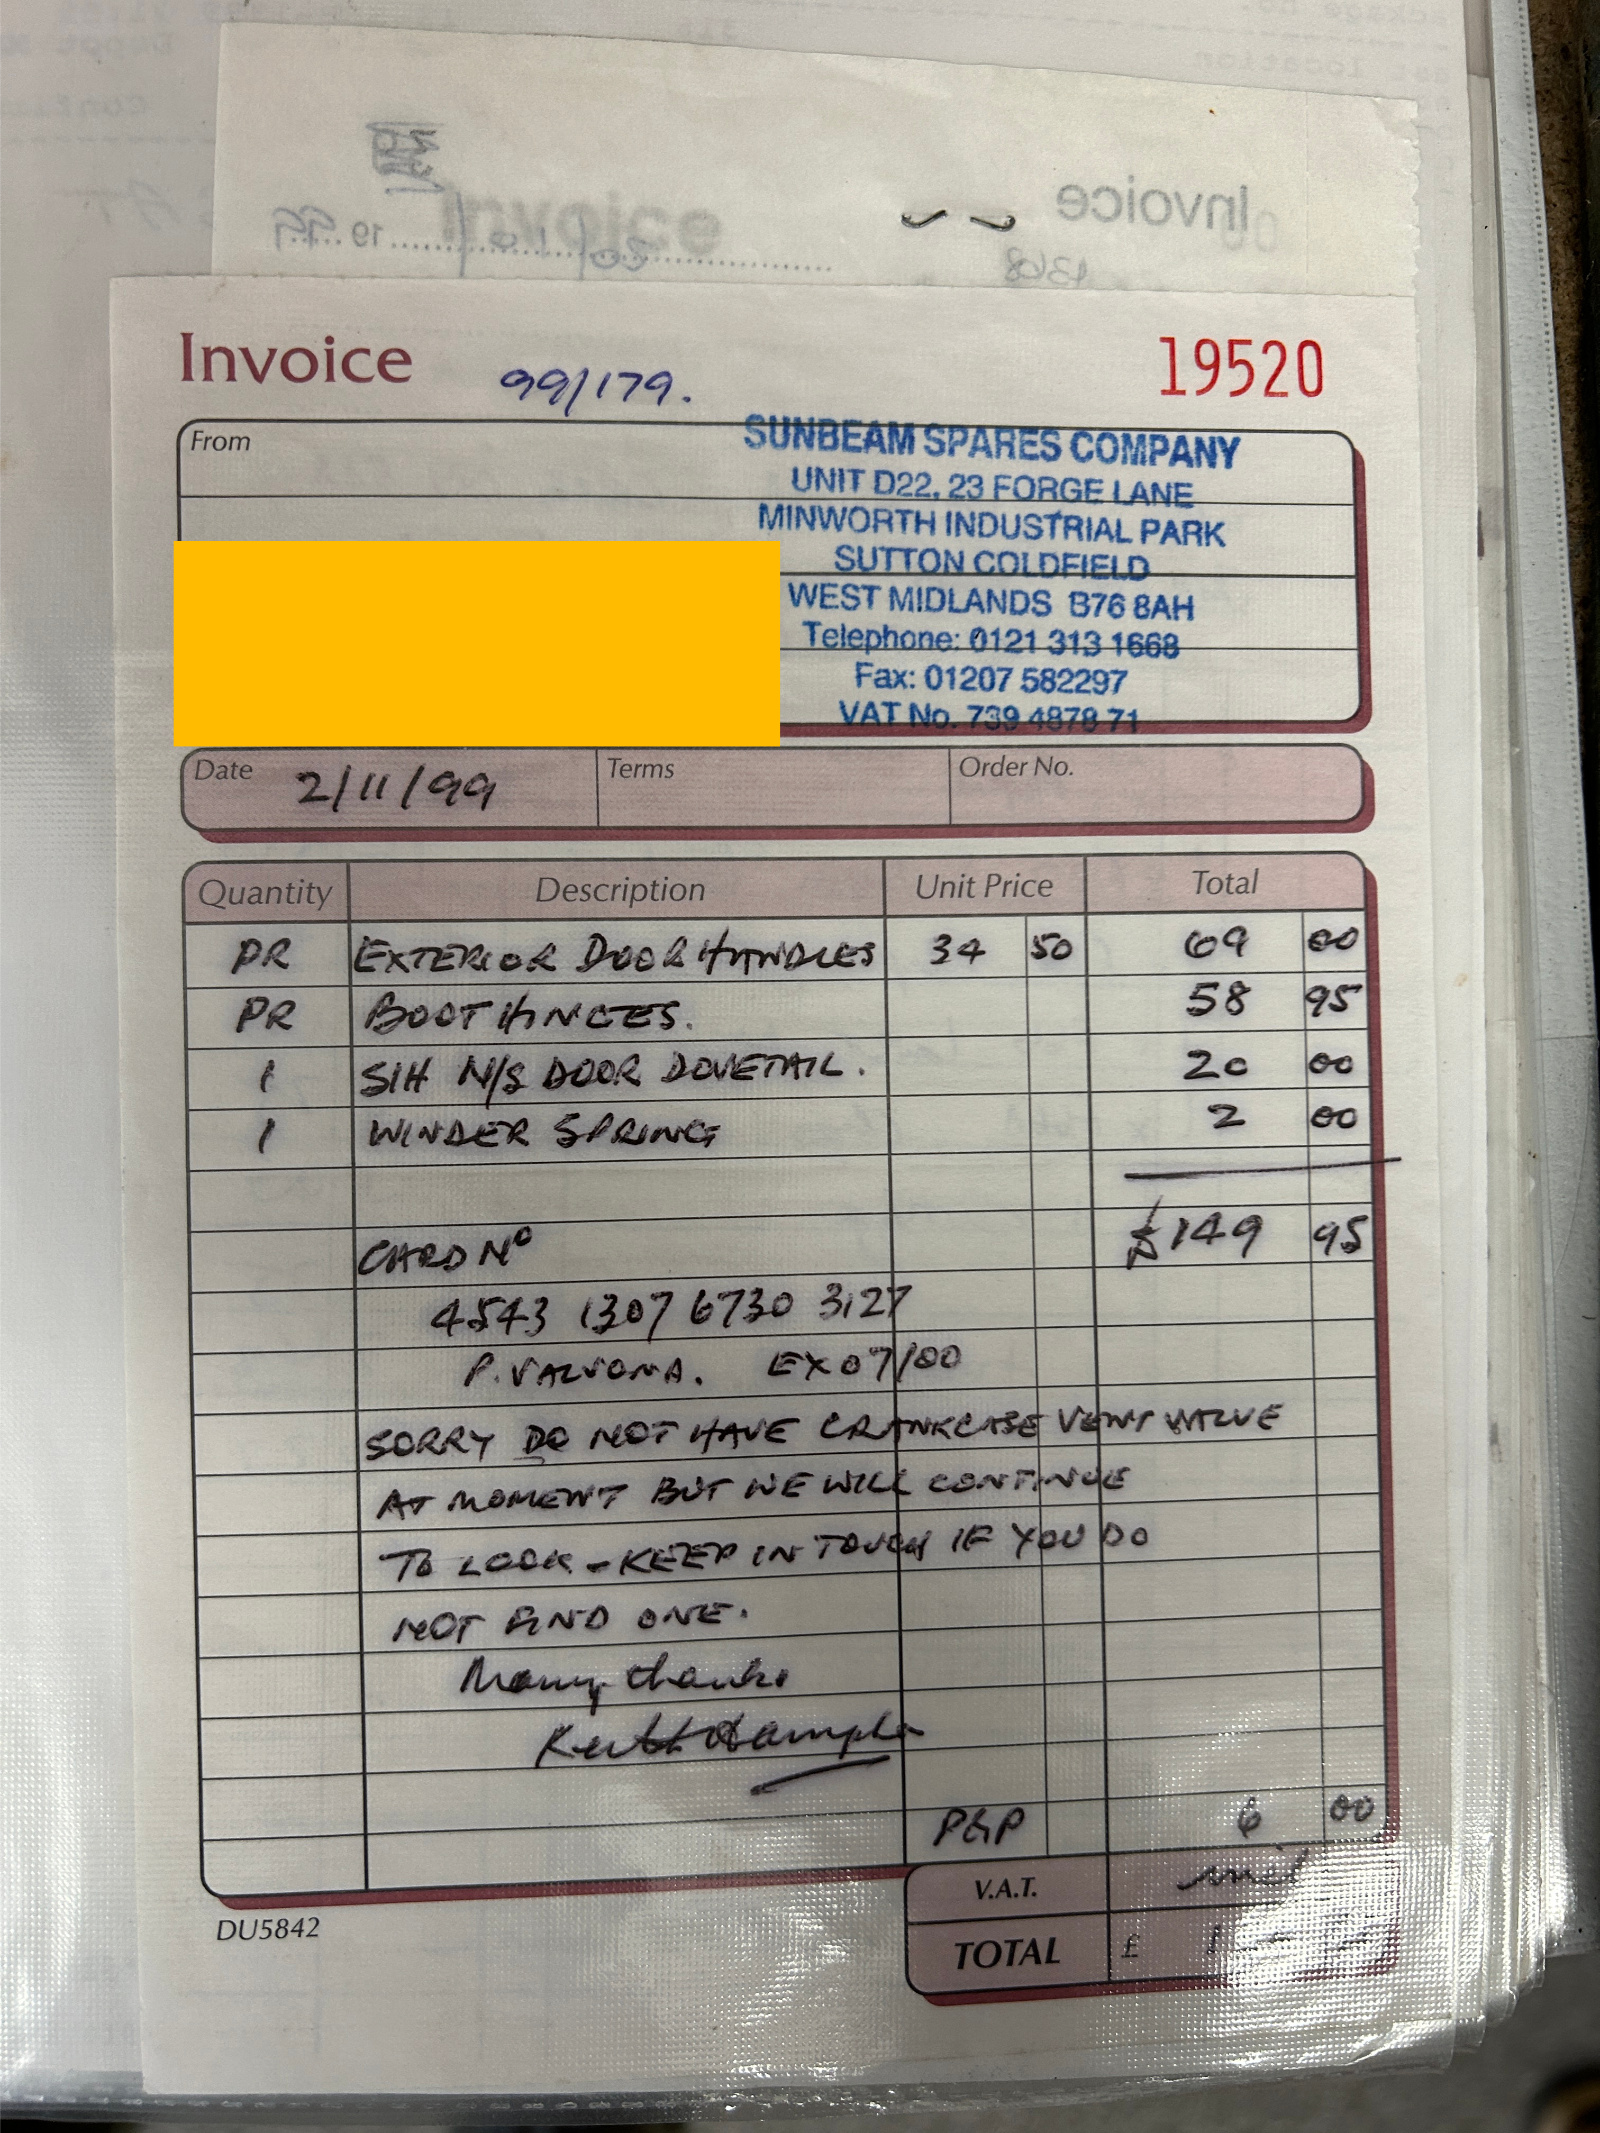 Invoice
Invoice
19
Invoice
99/179.
19520
From
SUNBEAM SPARES COMPANY
UNIT D22, 23 FORGE LANE
MINWORTH INDUSTRIAL PARK
SUTTON COLDFIELD
WEST MIDLANDS B76 8AH
Telephone: 0121 313 1668
Fax: 01207 582297
VAT No. 739 4878 71
Date 2/11/99 Terms Order No.
Quantity Description Unit Price Total
PR EXTERIOR DOOR HANDLES 34 50 69 00
PR BOOT HINGES. 58 95
1 S/H N/S DOOR DOVETAIL. 20 00
1 WINDER SPRING 2 00
£149 95
CARD No
4543 1307 6730 3127
P. VALVONA. EX 07/00
SORRY DO NOT HAVE CRANKCASE VENT VALVE
AT MOMENT BUT WE WILL CONTINUE
TO LOOK - KEEP IN TOUCH IF YOU DO
NOT FIND ONE.
Many thanks
Keith
P&P 6 00
V.A.T.
TOTAL £
DU5842